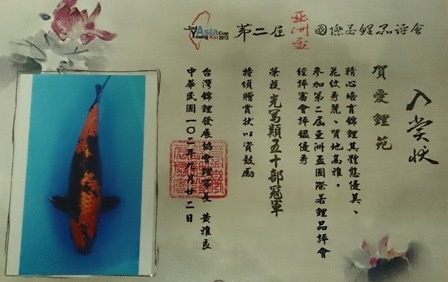 Asia Cup
Young Koi Show 2013
第二届亞洲盃國際若鯉品評會
入賞狀
賀愛鯉苑
精心培育錦鯉其體態優美、
花紋秀麗、質地高雅。
參加第二届亞洲盃國際若鯉品評會
經評審會評鑑優秀
榮獲光寫類五十部冠軍
特頒贈賞狀以資鼓勵
台灣錦鯉發展協會理事長 黃雅良
中華民國一〇二年九月廿二日